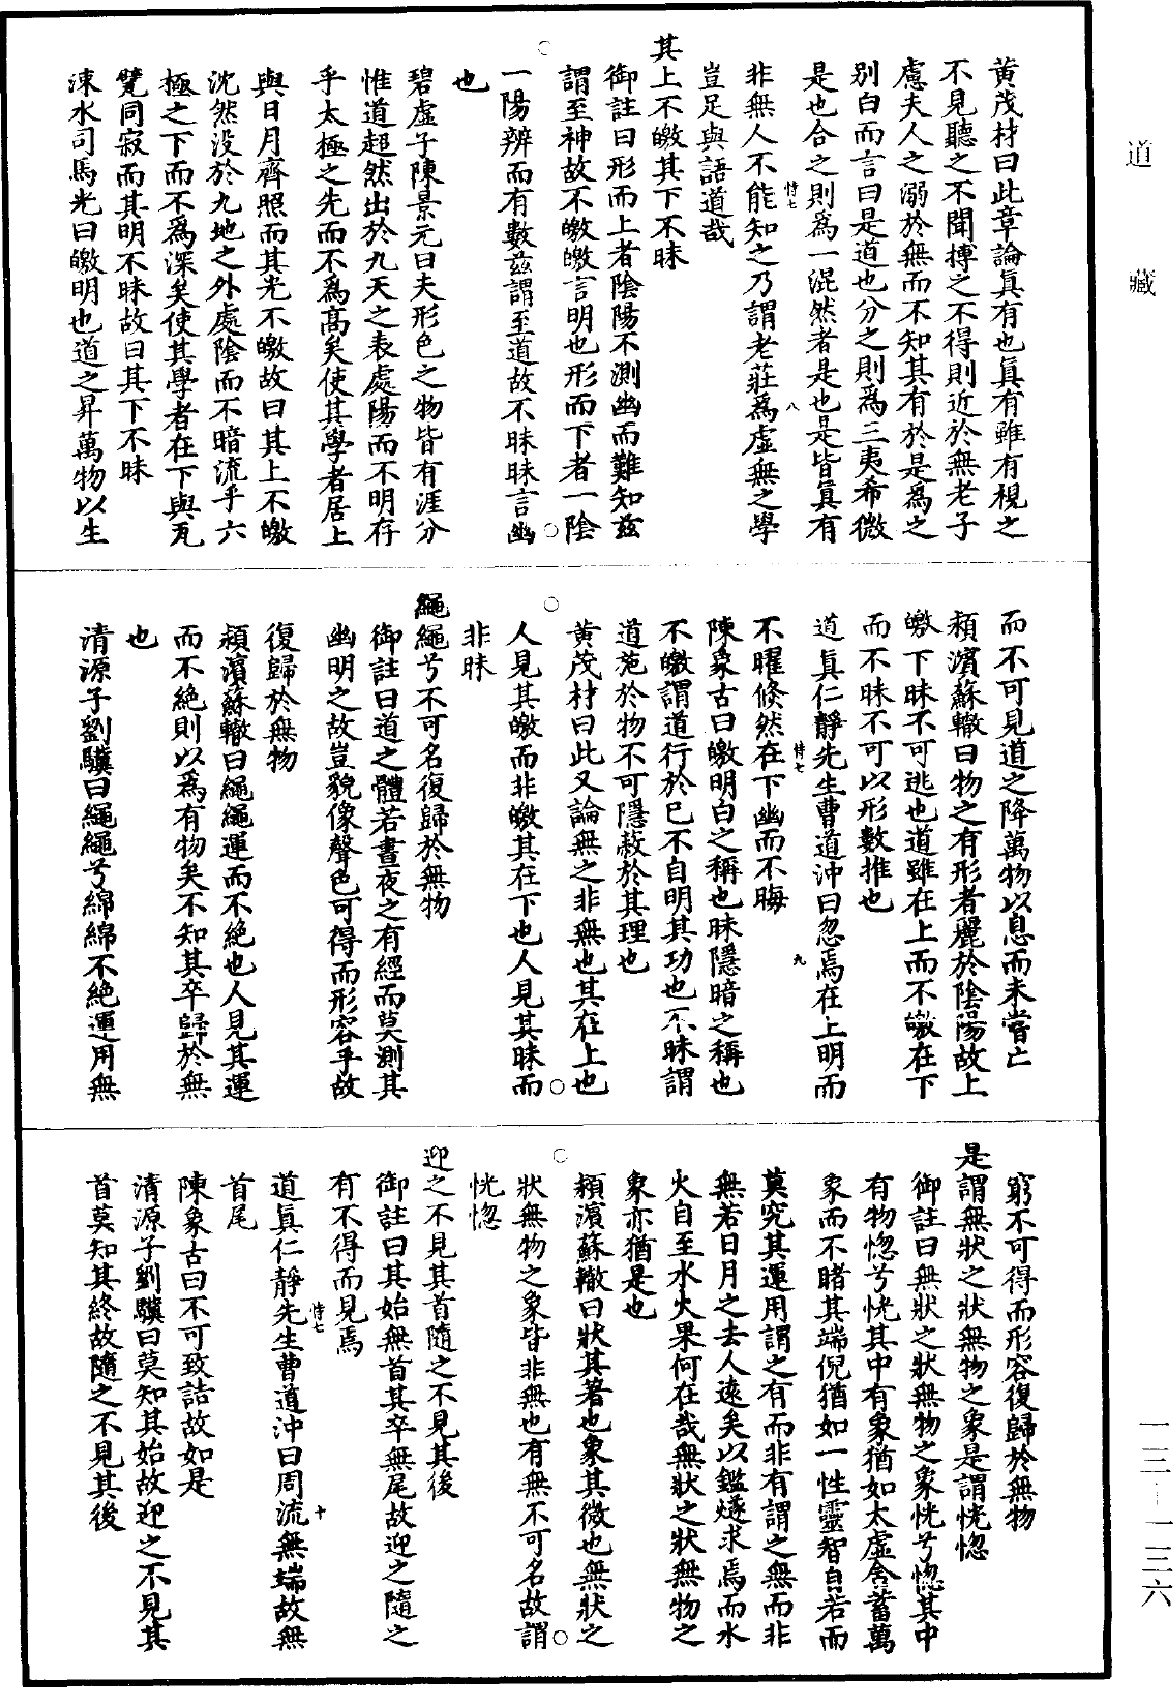 道藏
黃茂材曰此章論眞有也眞有雖有視之
不見聽之不聞搏之不得則近於無老子
慮夫人之溺於無而不知其有於是爲之
別白而言曰是道也分之則爲三夷希微
是也合之則爲一混然者是也是皆眞有
恃七 八
非無人不能知之乃謂老莊爲虛無之學
豈足與語道哉
其上不皦其下不昧
御註曰形而上者陰陽不測幽而難知茲
謂至神故不皦皦言明也形而下者一陰
一陽辨而有數茲謂至道故不昧昧言幽
也
碧虛子陳景元曰夫形色之物皆有涯分
惟道超然出於九天之表處陽而不明存
乎太極之先而不爲高矣使其學者居上
與日月齊照而其光不皦故曰其上不皦
沈然没於九地之外處陰而不暗流乎六
極之下而不爲深矣使其學者在下與瓦
甓同寂而其明不昧故曰其下不昧
涑水司馬光曰皦明也道之昇萬物以生
而不可見道之降萬物以息而未嘗亡
頴濱蘇轍曰物之有形者麗於陰陽故上
皦下昧不可逃也道雖在上而不皦在下
而不昧不可以形數推也
道眞仁靜先生曹道沖曰忽焉在上明而
恃七 九
不曜倏然在下幽而不晦
陳象古曰皦明白之稱也昧隱暗之稱也
不皦謂道行於已不自明其功也不昧謂
道施於物不可隱蔽於其理也
黃茂材曰此又論無之非無也其在上也
人見其皦而非皦其在下也人見其昧而
非昧
繩繩兮不可名復歸於無物
御註曰道之體若晝夜之有經而莫測其
幽明之故豈貌像聲色可得而形容乎故
復歸於無物
頴濱蘇轍曰繩繩運而不絶也人見其運
而不絶則以爲有物矣不知其卒歸於無
也
清源子劉驥曰繩繩兮綿綿不絶運用無
窮不可得而形容復歸於無物
是謂無狀之狀無物之象是謂恍惚
御註曰無狀之狀無物之象恍兮惚其中
有物惚兮恍其中有象猶如太虛含蓄萬
象而不睹其端倪猶如一性靈智自若而
莫究其運用謂之有而非有謂之無而非
無若日月之去人遠矣以鑑燧求焉而水
火自至水火果何在哉無狀之狀無物之
象亦猶是也
頴濱蘇轍曰狀其著也象其微也無狀之
狀無物之象皆非無也有無不可名故謂
恍惚
迎之不見其首隨之不見其後
御註曰其始無首其卒無尾故迎之隨之
有不得而見焉
恃七 十
道眞仁靜先生曹道沖曰周流無端故無
首尾
陳象古曰不可致詰故如是
清源子劉驥曰莫知其始故迎之不見其
首莫知其終故隨之不見其後
一三—一三六